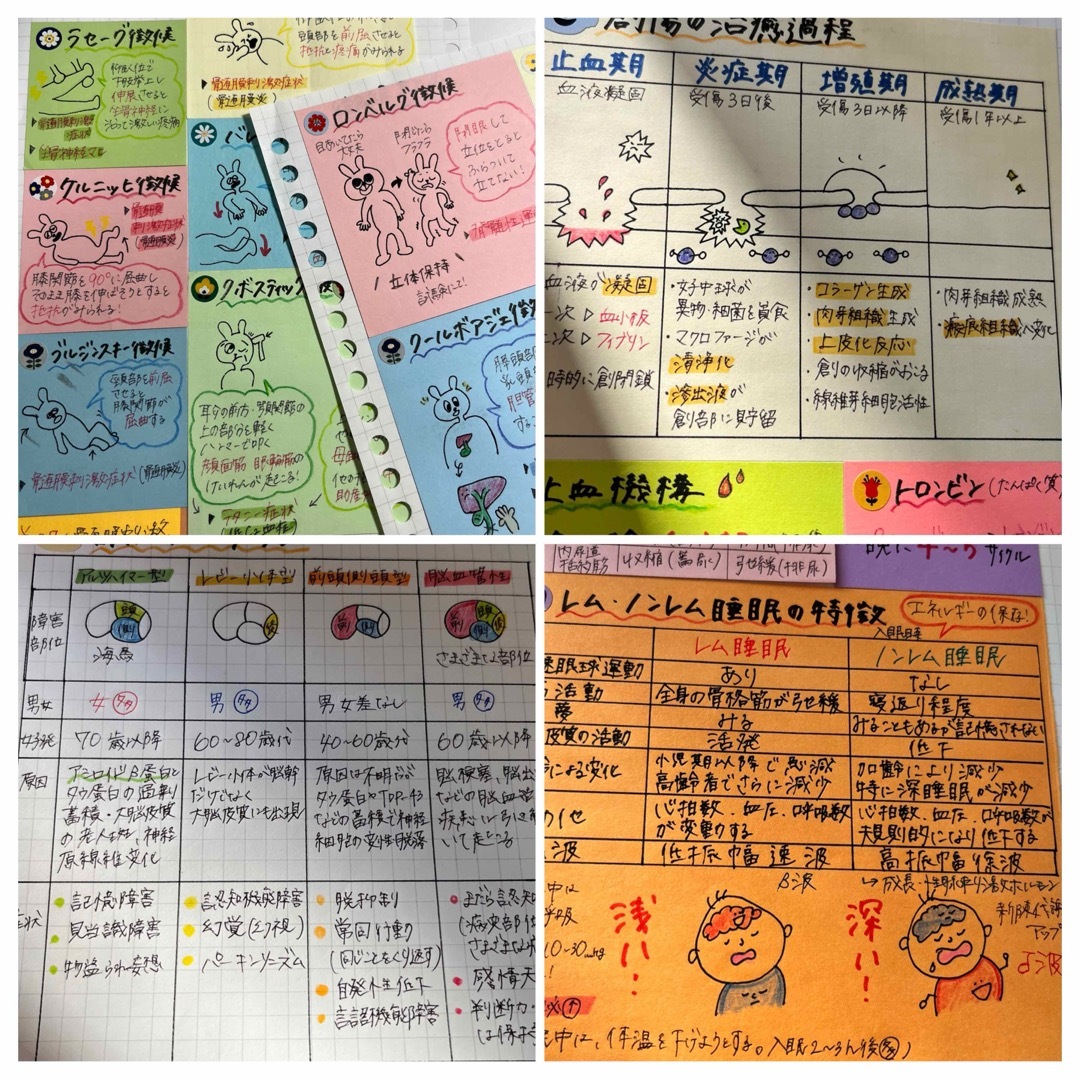 ラセーグ徴候
仰臥位で
下肢挙上し
伸展させると
坐骨神経に
沿って激しい疼痛
坐骨神経マヒ
頭部を前屈させると
抵抗と疼痛がみられる
髄膜刺激の症状
(髄膜炎)
クルニッヒ徴候
髄膜
刺激症状
(髄膜炎)
膝関節を90°に屈曲し
そのまま膝を伸ばそうとすると
抵抗がみられる!
ブルジンスキー徴候
頸部を前屈
させると
膝関節が
屈曲する
髄膜刺激の症状(髄膜炎)
バレ
クボスティック
耳介の前方・顎関節の
上の部分を軽く
ハンマーで叩く
顔面筋 眼輪筋の
けいれんが起こる!
テタニー症状
(低Ca血症)
ロンベルグ徴候
目あいてたら
大丈夫
閉じたら
フラフラ
閉眼して
立位をとると
ふらついて
立てない!
立体保持
クールボアジェ徴候
創傷の治癒過程
止血期
炎症期
増殖期
成熟期
血液凝固
受傷3日後
受傷3日以降
受傷1年以上
血液が凝固
一次▷血小板
二次▷フィブリン
時的に創閉鎖
・好中球が
異物・細菌を貪食
・マクロファージが
清浄化
・滲出液が
創部に貯留
・コラーゲン生成
・肉芽組織生成
・上皮化反応
・創の収縮がおこる
・線維芽細胞活性
・肉芽組織成熟
・瘢痕組織へ変化
止血機構
トロンビン(たんぱく質)
アルツハイマー型
レビー小体型
前頭側頭型
脳血管性
障害
部位
頭
側
海馬
後
前
側
前
頭
側
後
さまざまな部位
男女
女 多
男 多
男女差なし
男 多
好発
70歳以降
60~80歳代
40~60歳代
60歳以降
原因
アミロイドβ蛋白と
タウ蛋白の過剰
蓄積・大脳皮質
の老人斑、神経
原線維変化
レビー小体が脳幹
だけでなく
大脳皮質にも出現
原因は不明だが
タウ蛋白やTDP-43
などの蓄積で神経
細胞の変性脱落
脳梗塞、脳出
などの脳血管
疾患に引き続
いて起こる
症状
記憶障害
見当識障害
物盗られ妄想
認知機能障害
幻覚(幻視)
パーキンソニズム
脱抑制
常同行動
(同じことをくり返す)
自発性低下
言語機能障害
まだら認知
(病変部位
さまざまな
感情失
判断力・
は保た
内尿道
括約筋
収縮(蓄尿)
弛緩(排尿)
晩に4~5サイクル
レム・ノンレム睡眠の特徴
エネルギーの保存!
レム睡眠
入眠時
ノンレム睡眠
速眼球運動
あり
なし
活動
全身の骨格筋が弛緩
寝返り程度
夢
みる
みることもあるが記憶されない
皮質の活動
活発
低下
令による変化
小児期以降で急減
高齢者でさらに減少
加齢により減少
特に深睡眠が減少
の他
心拍数、血圧、呼吸数
が変動する
心拍数、血圧、呼吸数が
規則的になり低下する
波
低振幅速波
高振幅徐波
β波
→成長・性腺刺激ホルモン
浅い!
深い!
新陳代謝
アップ
δ波
中は
呼吸
10~30
中は、体温を下げようとする。入眠2~3h後